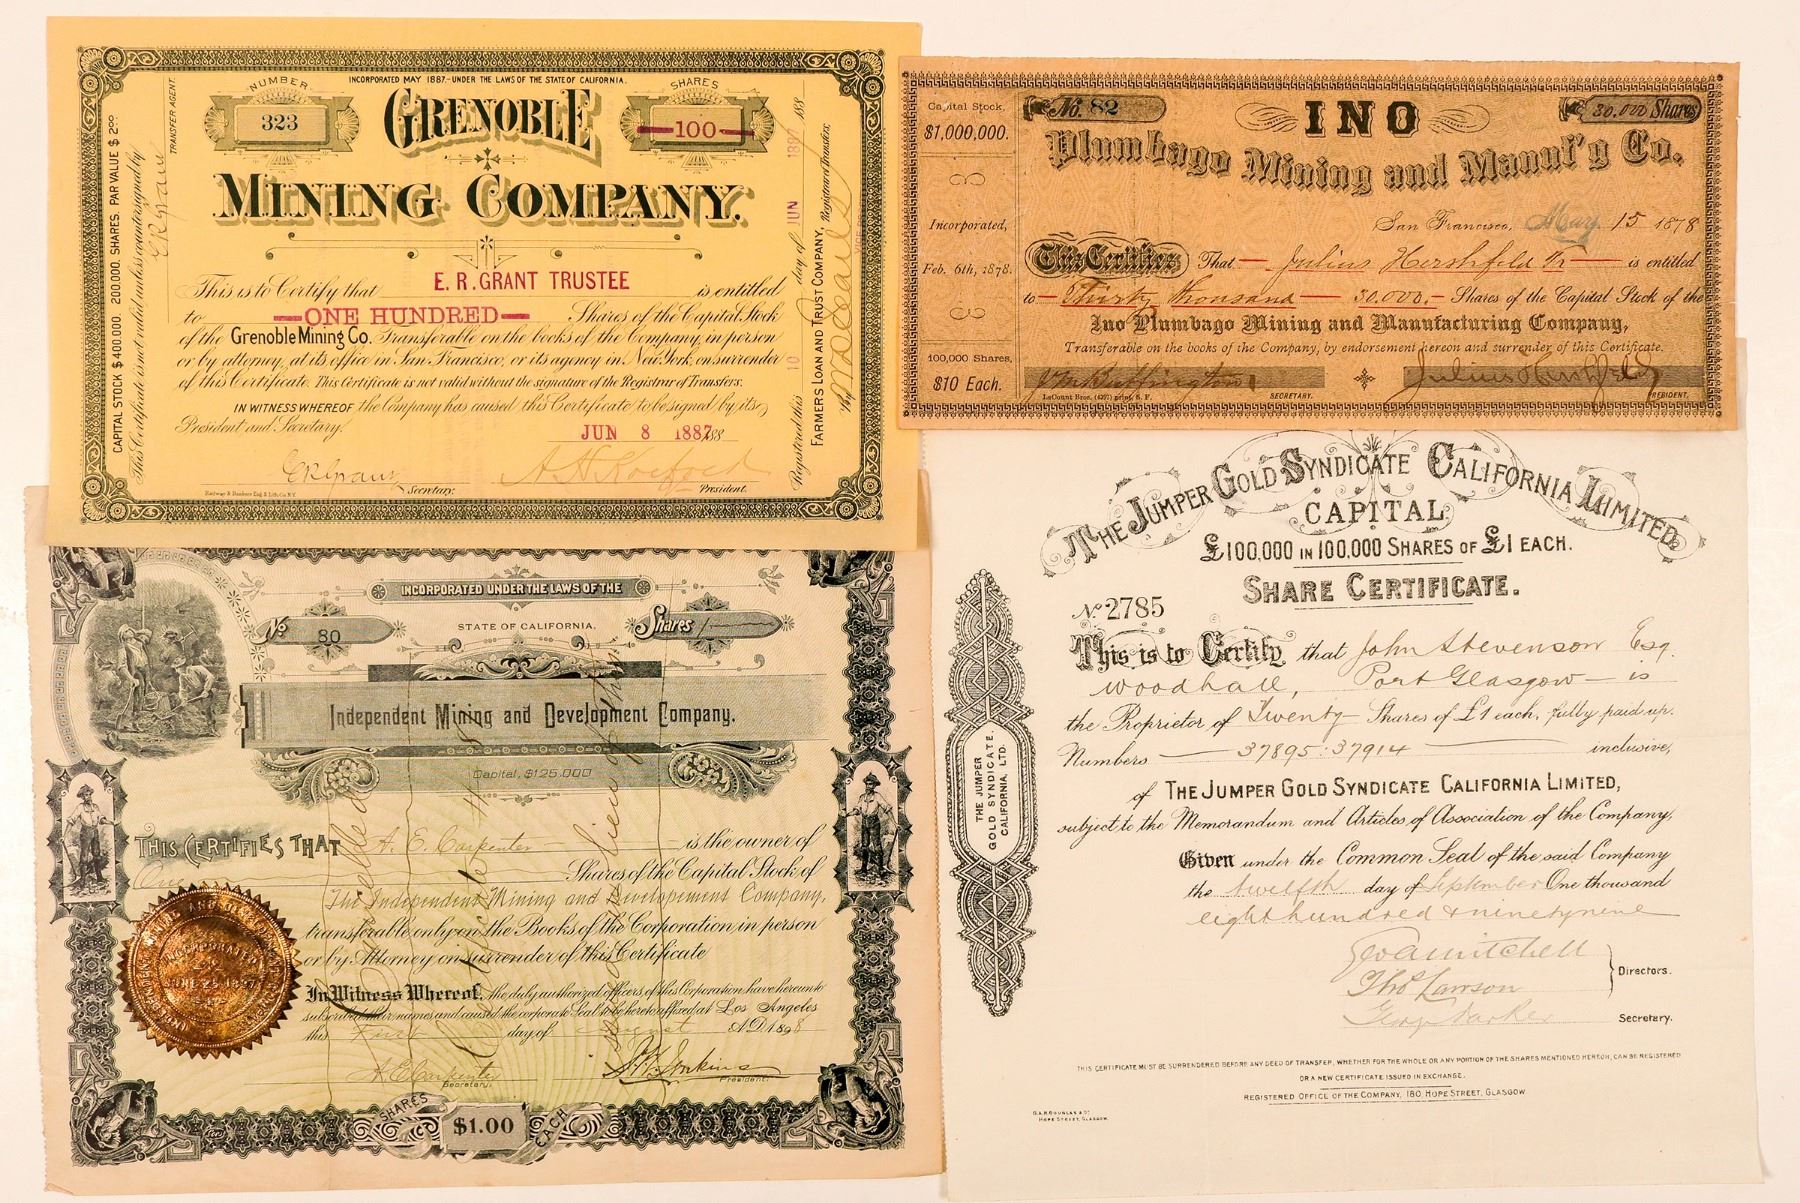 INCORPORATED MAY 1887.- UNDER THE LAWS OF THE STATE OF CALIFORNIA.
NUMBER
323
GRENOBLE
SHARES
100
MINING COMPANY.
This is to Certify that E. R. GRANT TRUSTEE is entitled
to ONE HUNDRED Shares of the Capital Stock
of the Grenoble Mining Co. Transferable on the books of the Company, in person
or by attorney, at its office in San Francisco, or its agency in New York, on surrender
of this Certificate. This Certificate is not valid without the signature of the Registrar of Transfers.
IN WITNESS WHEREOF the Company has caused this Certificate to be signed by its
President and Secretary.
JUN 8 1887 188
E R Grant Secretary. President.
CAPITAL STOCK $400.000. 200.000. SHARES. PAR VALUE $2.00
This Certificate is not valid unless countersigned by
E R Grant
TRANSFER AGENT.
Registered this 10 day of JUN 1887 188
FARMERS LOAN AND TRUST COMPANY, Registrar of Transfers.
By
Capital Stock,
$1,000,000.
Incorporated,
Feb. 6th, 1878.
100,000 Shares,
$10 Each.
No. 82
INO
30.000 Shares
Plumbago Mining and Manuf'g Co.
San Francisco, May 15 1878
This Certifies That Julius Hershfeld Tr is entitled
to Thirty thousand 30.000. Shares of the Capital Stock of the
Ino Plumbago Mining and Manufacturing Company,
Transferable on the books of the Company, by endorsement hereon and surrender of this Certificate.
J M Buffington Julius Hershfeld
LeCount Bros. (4397) print, S. F. SECRETARY. PRESIDENT.
INCORPORATED UNDER THE LAWS OF THE
No 80
STATE OF CALIFORNIA.
Shares 1
Independent Mining and Development Company.
Capital, $125,000
THIS CERTIFIES THAT A. E. Carpenter is the owner of
One Shares of the Capital Stock of
The Independent Mining and Development Company,
transferable only on the Books of the Corporation in person
or by Attorney on surrender of this Certificate
In Witness Whereof, the duly authorized officers of this Corporation have hereunto
subscribed their names and caused the corporate Seal to be hereto affixed at Los Angeles
this First day of August A.D. 1898
A E Carpenter
Secretary. President.
INCORPORATED
JUNE 25 1897
SHARES $1.00 EACH
THE JUMPER GOLD SYNDICATE CALIFORNIA LIMITED.
CAPITAL
£100,000 IN 100,000 SHARES OF £1 EACH.
SHARE CERTIFICATE.
No 2785
This is to Certify that John Stevenson Esq.
Woodhall, Port Glasgow is
the Proprietor of Twenty Shares of £1 each, fully paid up.
Numbers 37895:37914 inclusive,
of THE JUMPER GOLD SYNDICATE CALIFORNIA LIMITED,
subject to the Memorandum and Articles of Association of the Company,
Given under the Common Seal of the said Company
the twelfth day of September One thousand
eight hundred & ninety nine
Geo A Mitchell
Thos Lawson
Directors.
Secretary.
THE JUMPER
GOLD SYNDICATE.
CALIFORNIA, LTD.
THIS CERTIFICATE MUST BE SURRENDERED BEFORE ANY DEED OF TRANSFER, WHETHER FOR THE WHOLE OR ANY PORTION OF THE SHARES MENTIONED HEREON, CAN BE REGISTERED
OR A NEW CERTIFICATE ISSUED IN EXCHANGE.
REGISTERED OFFICE OF THE COMPANY, 180, HOPE STREET, GLASGOW
HOPE STREET, GLASGOW.